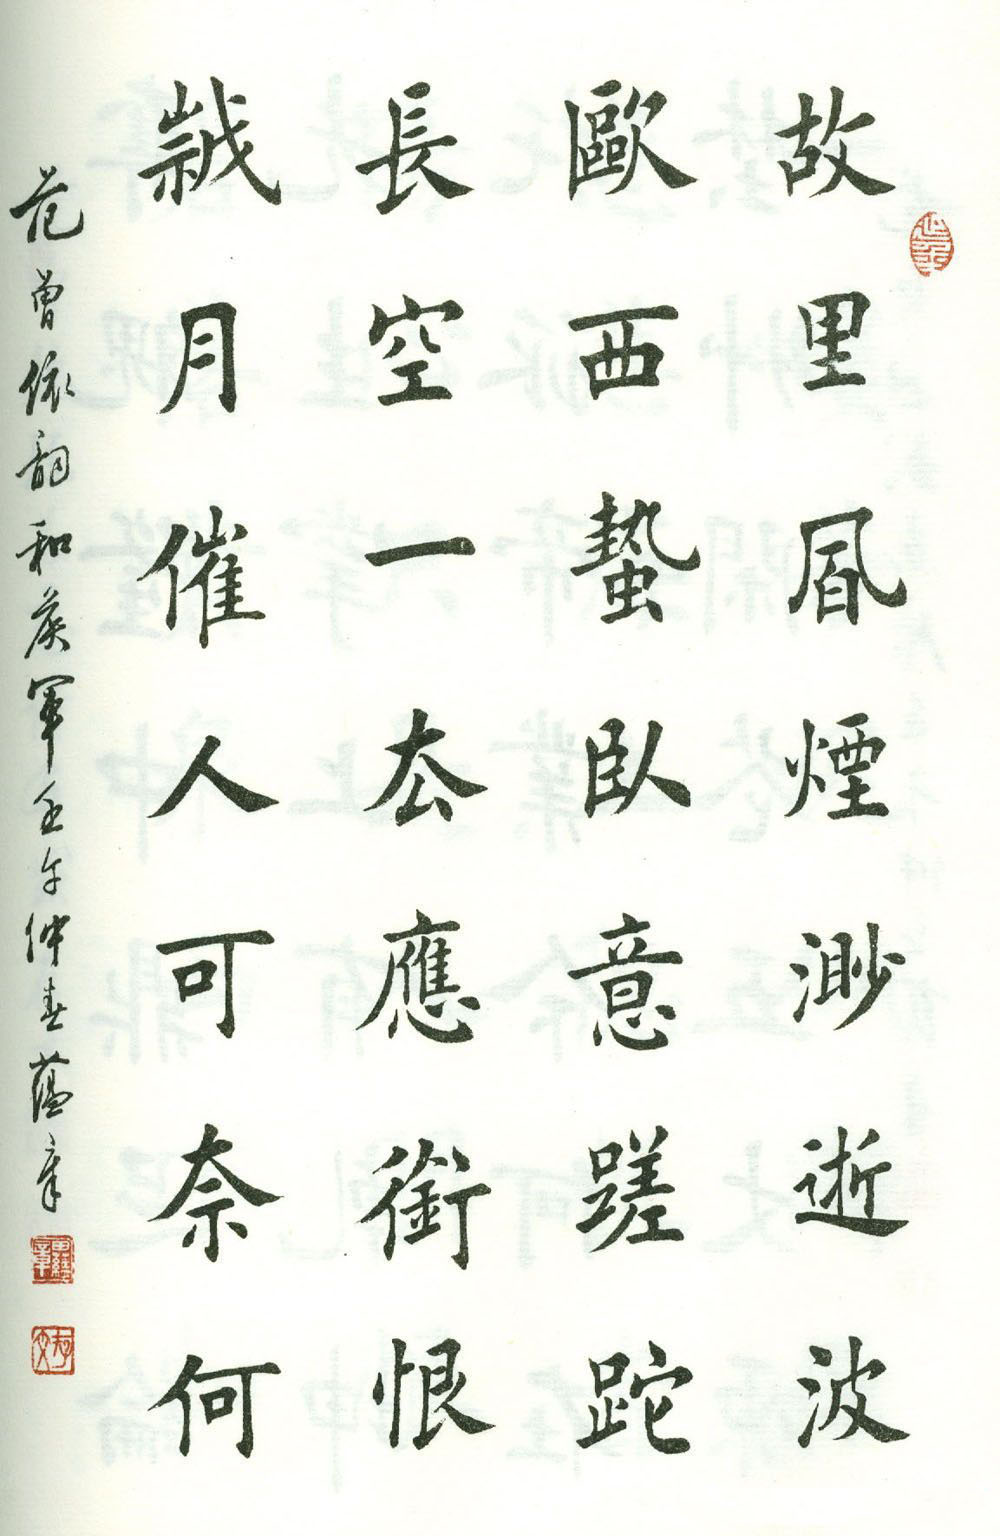 故里風煙渺逝波
歐西蟄臥意蹉跎
長空一厺應銜恨
歲月催人可奈何
范曾依韻和矦軍壬午仲春薀章